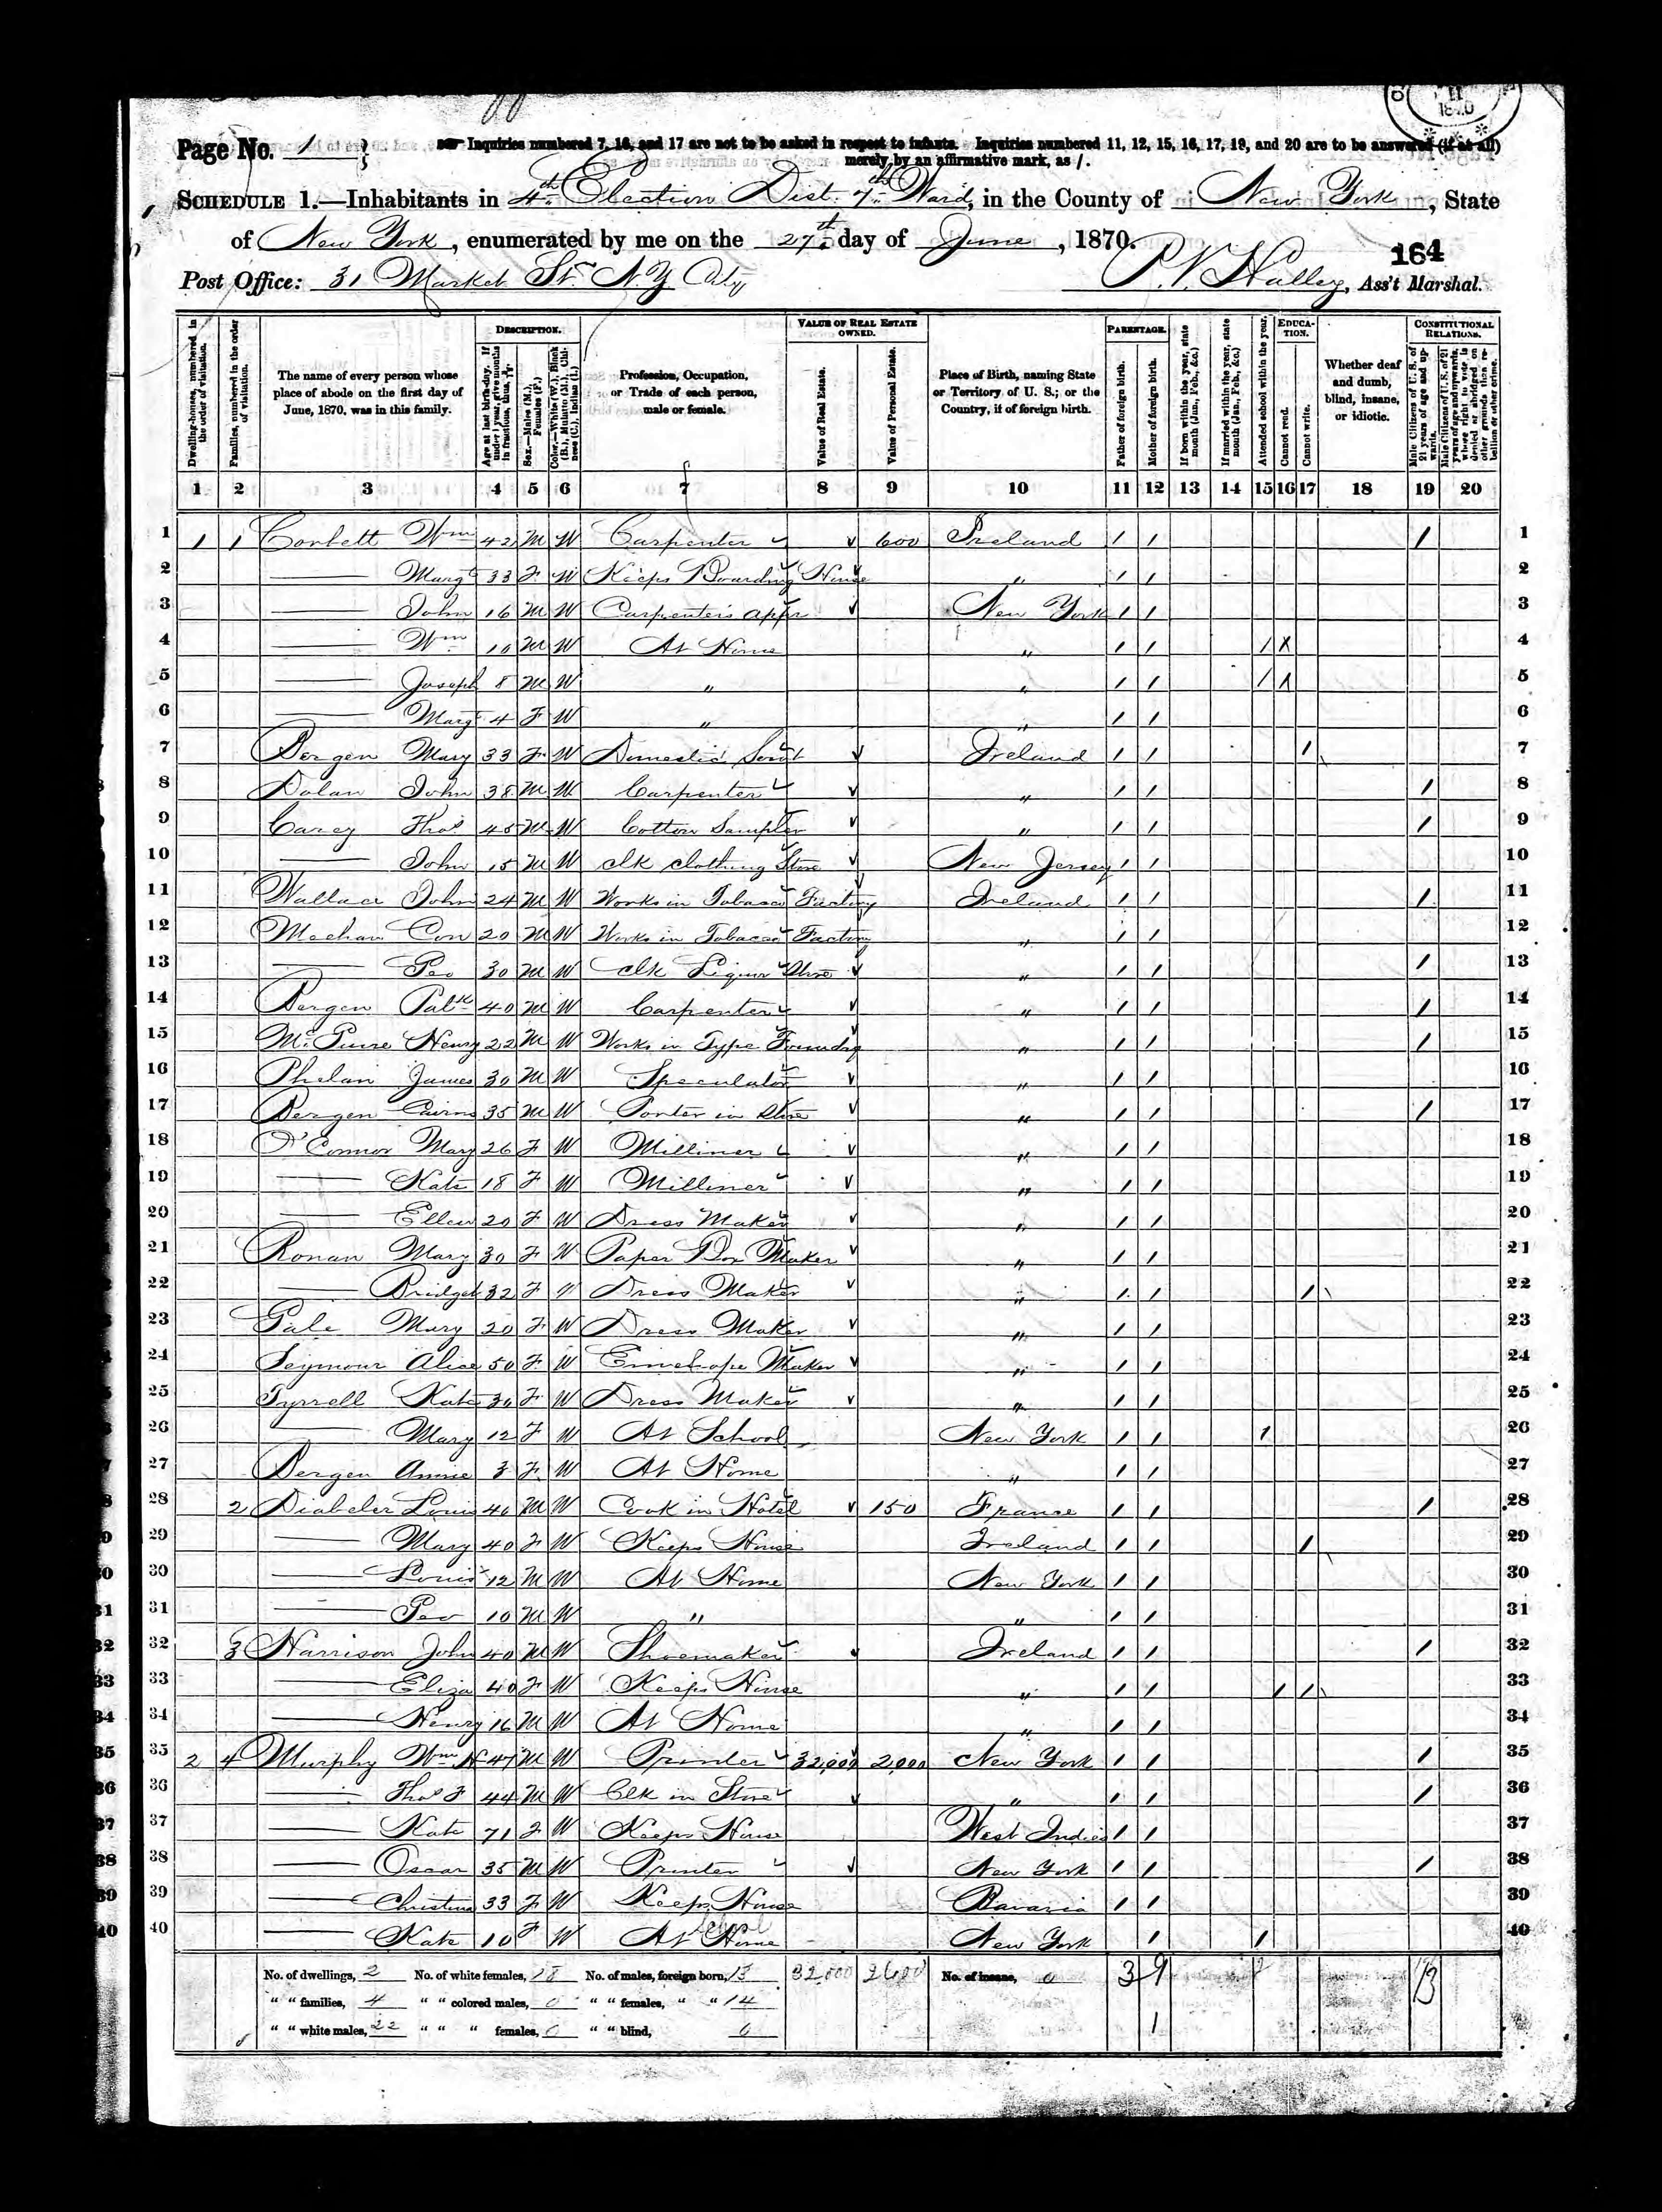 Page No. 1
Inquiries numbered 7, 16, and 17 are not to be asked in respect to infants. Inquiries numbered 11, 12, 15, 16, 17, 19, and 20 are to be answered (if at all)
merely by an affirmative mark, as /.
SCHEDULE 1.—Inhabitants in 4th Election Dist. 7th Ward, in the County of New York, State
of New York, enumerated by me on the 27th day of June, 1870.
184
Post Office: 31 Market St. N.Y City P.V. Halley, Ass't Marshal.
Dwelling-houses, numbered in the order of visitation.
Families, numbered in the order of visitation.
The name of every person whose place of abode on the first day of June, 1870, was in this family.
DESCRIPTION.
Age at last birth-day. If under 1 year, give months in fractions, thus,
Sex.—Males (M.), Females (F.)
Color.—White (W.), Black (B.), Mulatto (M.), Chinese (C.), Indian (I.)
Profession, Occupation, or Trade of each person, male or female.
VALUE OF REAL ESTATE OWNED.
Value of Real Estate.
Value of Personal Estate.
Place of Birth, naming State or Territory of U. S.; or the Country, if of foreign birth.
PARENTAGE.
Father of foreign birth.
Mother of foreign birth.
If born within the year, state month (Jan., Feb., &c.)
If married within the year, state month (Jan., Feb., &c.)
Attended school within the year.
EDUCATION.
Cannot read.
Cannot write.
Whether deaf and dumb, blind, insane, or idiotic.
CONSTITUTIONAL RELATIONS.
Male Citizens of U. S. of 21 years of age and upwards.
Male Citizens of U. S. of 21 years of age and upwards, whose right to vote is denied or abridged on other grounds than rebellion or other crime.
1 2 3 4 5 6 7 8 9 10 11 12 13 14 15 16 17 18 19 20
1 1 1 Corbett Wm 42 M W Carpenter 600 Ireland / / / 1
2 —— Margt 33 F W Keeps Boarding House " / / 2
3 —— John 16 M W Carpenters appr New York / / 3
4 —— Wm 10 M W At Home " / / / X 4
5 —— Joseph 8 M W " " / / / 5
6 —— Margt 4 F W " " / / 6
7 Bergen Mary 33 F W Domestic Servt Ireland / / / 7
8 Dolan John 38 M W Carpenter " / / / 8
9 Carey Thos 45 M W Cotton Sampler " / / / 9
10 —— John 15 M W clk clothing Store New Jersey / / 10
11 Wallace John 24 M W Works in Tobacco Factory Ireland / / / 11
12 Meehan Con 20 M W Works in Tobacco Factory " / / 12
13 —— Geo 30 M W Clk Liquor Store " / / / 13
14 Bergen Patk 40 M W Carpenter " / / / 14
15 Henry 22 M W Works in Type Foundry " / / / 15
16 Phelan James 30 M W Speculator " / / 16
17 Bergen 35 M W Porter in Store " / / / 17
18 O'Connor Mary 26 F W Milliner " / / 18
19 —— Kate 18 F W Milliner " / / 19
20 —— Ellen 20 F W Dress Maker " / / 20
21 Ronan Mary 30 F W Paper Box Maker " / / 21
22 —— Bridget 32 F W Dress Maker " / / / 22
23 Gale Mary 20 F W Dress Maker " / / 23
24 Seymour Alice 50 F W Envelope Maker " / / 24
25 Tyrrell Kate 30 F W Dress Maker " / / 25
26 —— Mary 12 F W At School New York / / / 26
27 Bergen Annie 3 F W At Home " / / 27
28 2 Diabeler Louis 46 M W Cook in Hotel 150 France / / / 28
29 —— Mary 40 F W Keeps House Ireland / / / 29
30 —— Louis 12 M W At Home New York / / 30
31 —— Geo 10 M W " " / / 31
32 3 Harrison John 40 M W Shoemaker Ireland / / / 32
33 —— Eliza 40 F W Keeps House " / / / / 33
34 —— Henry 16 M W At Home " / / 34
35 2 4 Murphy Wm H 47 M W Printer 32,000 2,000 New York / / / 35
36 —— Thos F 44 M W Clk in Store " / / / 36
37 —— Kate 71 F W Keeps House West Indies / / 37
38 —— Oscar 35 M W Printer New York / / / 38
39 —— Christina 33 F W Keeps House Bavaria / / 39
40 —— Kate 10 F W At Home School New York / / 40
No. of dwellings, 2 No. of white females, 18 No. of males, foreign born, 13 32,000 2600 No. of insane, 0 39 13
" " families, 4 " " colored males, 0 " " females, " " 14
" " white males, 22 " " " females, 0 " " blind, 0 1